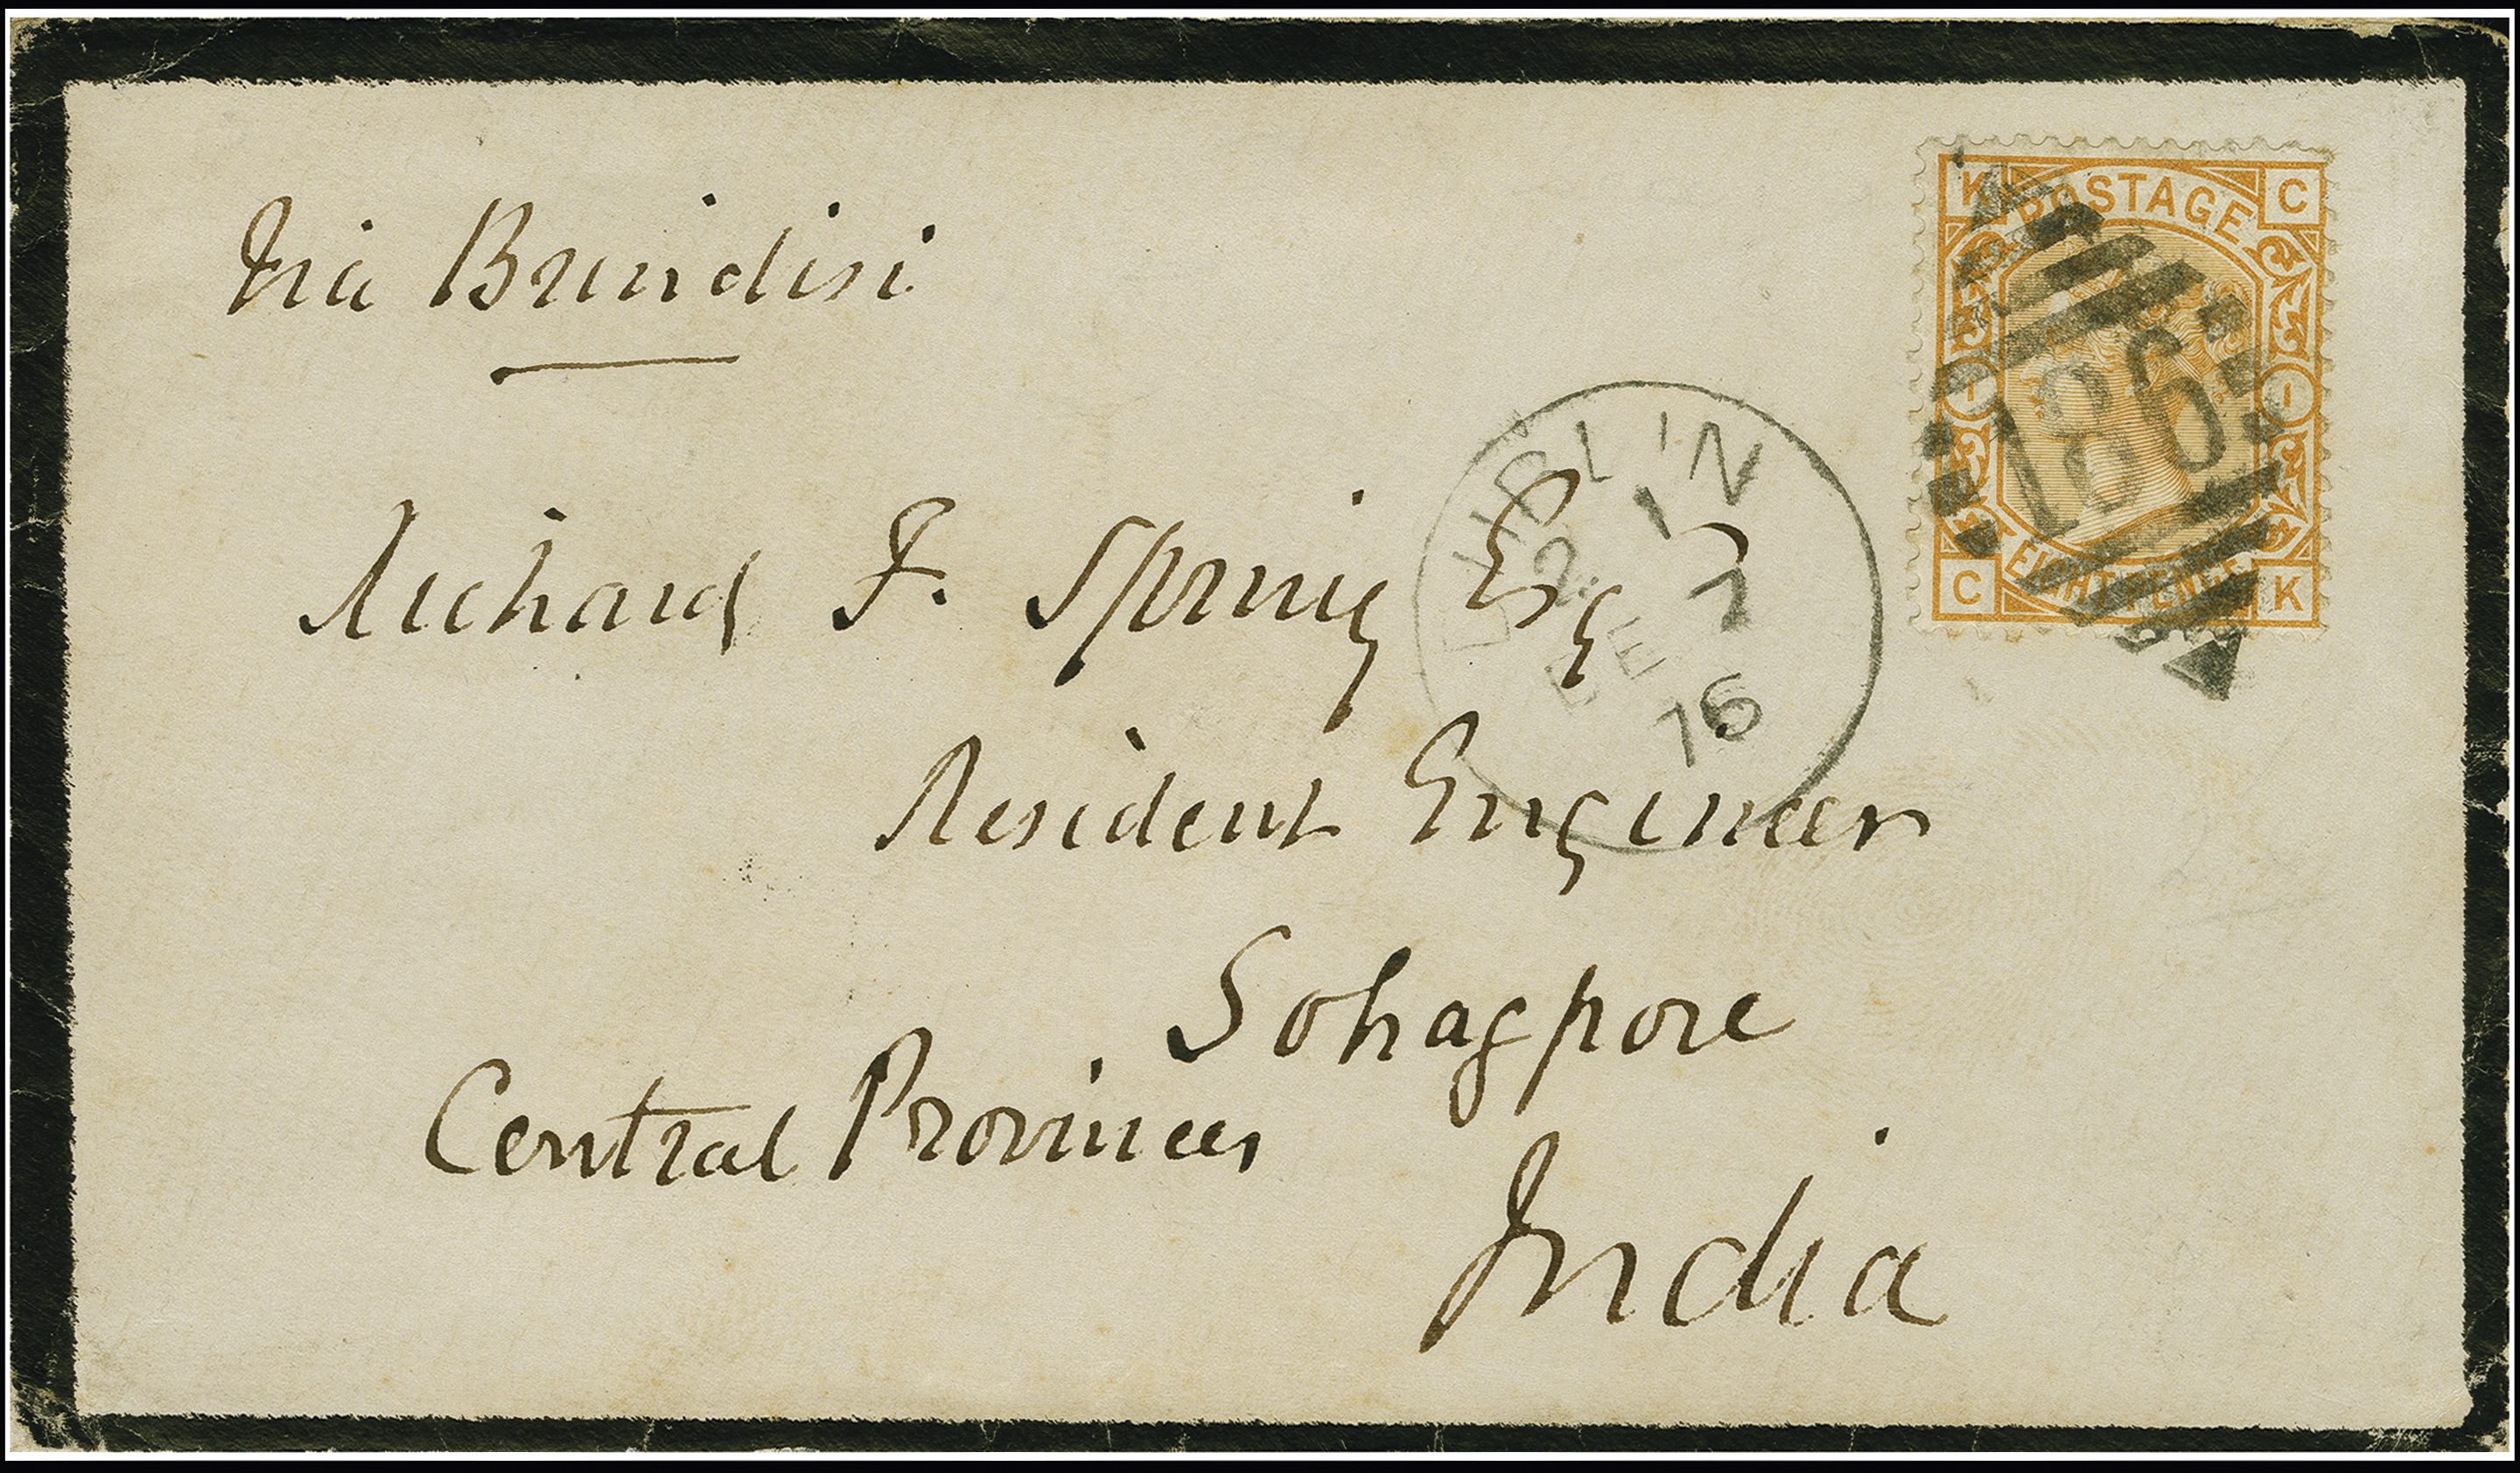 Via Brindisi
K POSTAGE C
186
C EIGHT PENCE K
DUBLIN
2
FE 7
76
Richard F. Spring Esq
Resident Engineer
Sohagpore
Central Provinces
India